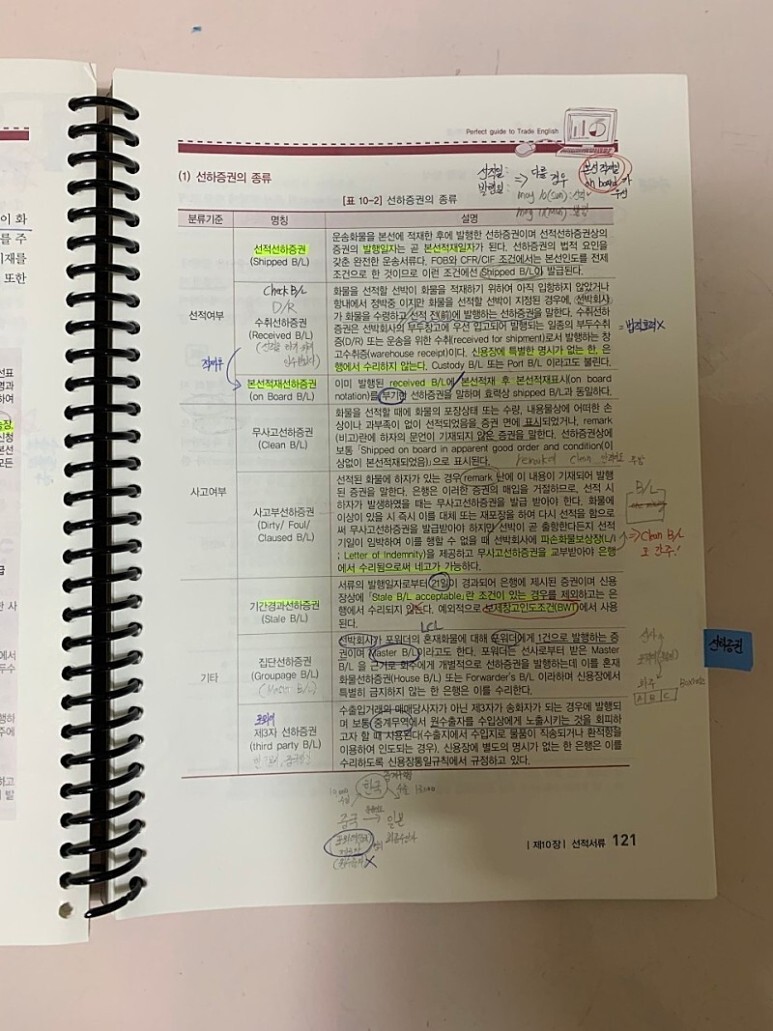 이 화
를 주
기재를
또한
선표
명과
하여
신청
본선
모든
급
사
에서
두수
행하
주에
하고
발
Perfect guide to Trade English
(1) 선하증권의 종류
선적일 :
발행일 :
⇒ 다를 경우
본선적재일
on board가
우선
[표 10-2] 선하증권의 종류
분류기준
명칭
설명
선적여부
선적선하증권
(Shipped B/L)
운송화물을 본선에 적재한 후에 발행한 선하증권이며 선적선하증권상의
증권의 발행일자는 곧 본선적재일자가 된다. 선하증권의 법적 요인을
갖춘 완전한 운송서류다. FOB와 CFR/CIF 조건에서는 본선인도를 전제
조건으로 한 것이므로 이런 조건에선 Shipped B/L이 발급된다.
Check B/L
D/R
수취선하증권
(Received B/L)
화물을 선적할 선박이 화물을 적재하기 위하여 아직 입항하지 않았거나
항내에서 정박중 이지만 화물을 선적할 선박이 지정된 경우에, 선박회사
가 화물을 수령하고 선적 전(前)에 발행하는 선하증권을 말한다. 수취선하
증권은 선박회사의 부두창고에 우선 입고되어 발행되는 일종의 부두수취
증(D/R) 또는 운송을 위한 수취(received for shipment)로서 발행하는 창
고수취증(warehouse receipt)이다. 신용장에 특별한 명시가 없는 한, 은
행에서 수리하지 않는다. Custody B/L 또는 Port B/L 이라고도 불린다.
= 법적효력X
본선적재선하증권
(on Board B/L)
이미 발행된 received B/L에 본선적재 후 본선적재표시(on board
notation)를 부기한 선하증권을 말하며 효력상 shipped B/L과 동일하다.
사고여부
무사고선하증권
(Clean B/L)
화물을 선적할 때에 화물의 포장상태 또는 수량, 내용물상에 어떠한 손
상이나 과부족이 없이 선적되었음을 증권 면에 표시되었거나, remark
(비고)란에 하자의 문언이 기재되지 않은 증권을 말한다. 선하증권상에
보통 「Shipped on board in apparent good order and condition(이
상없이 본선적재되었음)」으로 표시된다.
사고부선하증권
(Dirty/ Foul/
Claused B/L)
선적된 화물에 하자가 있는 경우 remark 난에 이 내용이 기재되어 발행
된 증권을 말한다. 은행은 이러한 증권의 매입을 거절하므로, 선적 시
하자가 발생했을 때는 무사고선하증권을 발급 받아야 한다. 화물에
이상이 있을 시 즉시 이를 대체 또는 재포장을 하여 다시 선적을 함으로
써 무사고선하증권을 발급받아야 하지만 선박이 곧 출항한다든지 선적
기일이 임박하여 이를 행할 수 없을 때 선박회사에 파손화물보상장(L/I
; Letter of Indemnity)을 제공하고 무사고선하증권을 교부받아야 은행
에서 수리됨으로써 네고가 가능하다.
B/L
⇒ Clean B/L
로 간주!
기타
기간경과선하증권
(Stale B/L)
서류의 발행일자로부터 21일이 경과되어 은행에 제시된 증권이며 신용
장상에 「Stale B/L acceptable」란 조건이 있는 경우를 제외하고는 은
행에서 수리되지 않는다. 예외적으로 보세창고인도조건(BWT)에서 사용
된다.
LCL
집단선하증권
(Groupage B/L)
(Master B/L)
선박회사가 포워더의 혼재화물에 대해 포워더에게 1건으로 발행하는 증
권이며 Master B/L이라고도 한다. 포워더는 선사로부터 받은 Master
B/L 을 근거로 화주에게 개별적으로 선하증권을 발행하는데 이를 혼재
화물선하증권(House B/L) 또는 Forwarder's B/L 이라하며 신용장에서
특별히 금지하지 않는 한 은행은 이를 수리한다.
화주
A B C
제3자 선하증권
(third party B/L)
수출입거래의 매매당사자가 아닌 제3자가 송화자가 되는 경우에 발행되
며 보통 중계무역에서 원수출자를 수입상에게 노출시키는 것을 회피하
고자 할 때 사용된다(수출지에서 수입지로 물품이 직송되거나 환적항을
이용하여 인도되는 경우). 신용장에 별도의 명시가 없는 한 은행은 이를
수리하도록 신용장통일규칙에서 규정하고 있다.
선하증권
한국
중국 → 일본
| 제10장 | 선적서류 121